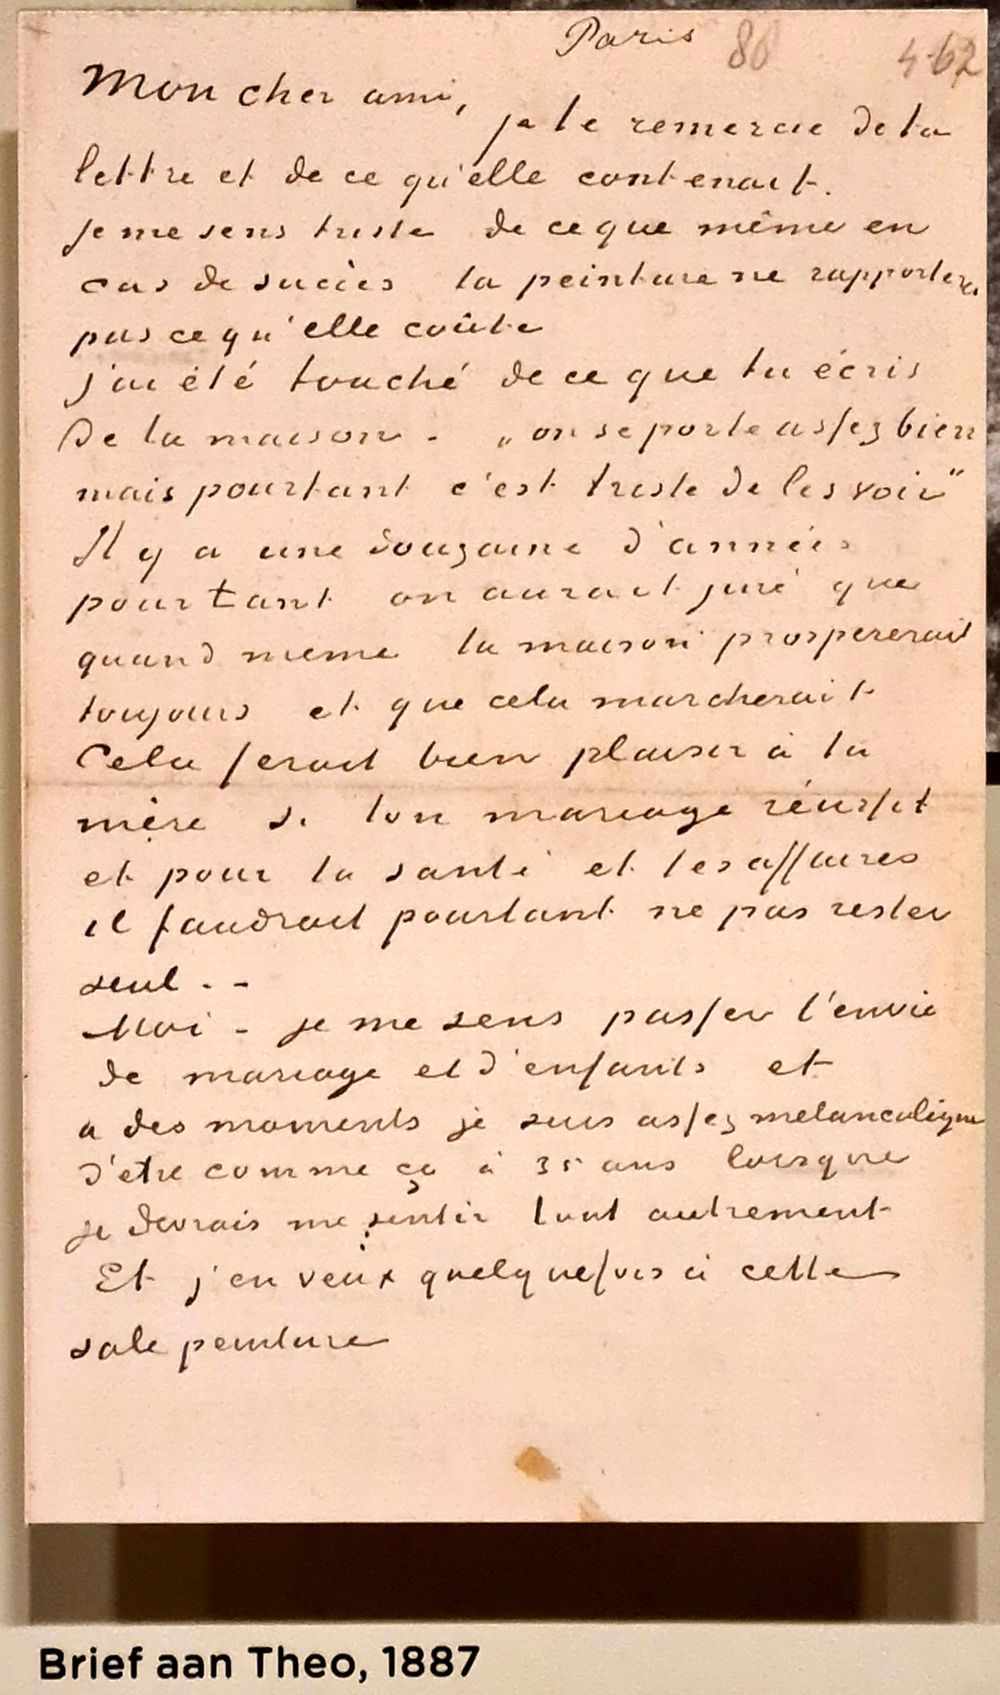 Paris 80 462
Mon cher ami,
je te remercie de ta
lettre et de ce qu'elle contenait.
Je me sens triste de ce que même en
cas de succès la peinture ne rapportera
pas ce qu'elle coûte
j'ai été touché de ce que tu écris
de la maison - „on se porte assez bien
mais pourtant c'est triste de les voir"
Il y a une douzaine d'années
pourtant on aurait juré que
quand meme la maison prospererait
toujours et que cela marcherait
Cela ferait bien plaisir à la
mère si ton mariage réussit
et pour ta santé et tes affaires
il faudrait pourtant ne pas rester
seul . -
Moi - je me sens passer l'envie
de mariage et d'enfants et
a des moments je suis assez melancolique
d'etre comme ça à 35 ans lorsque
je devrais me sentir tout autrement
Et j'en veux quelquefois à cette
sale peinture
Brief aan Theo, 1887